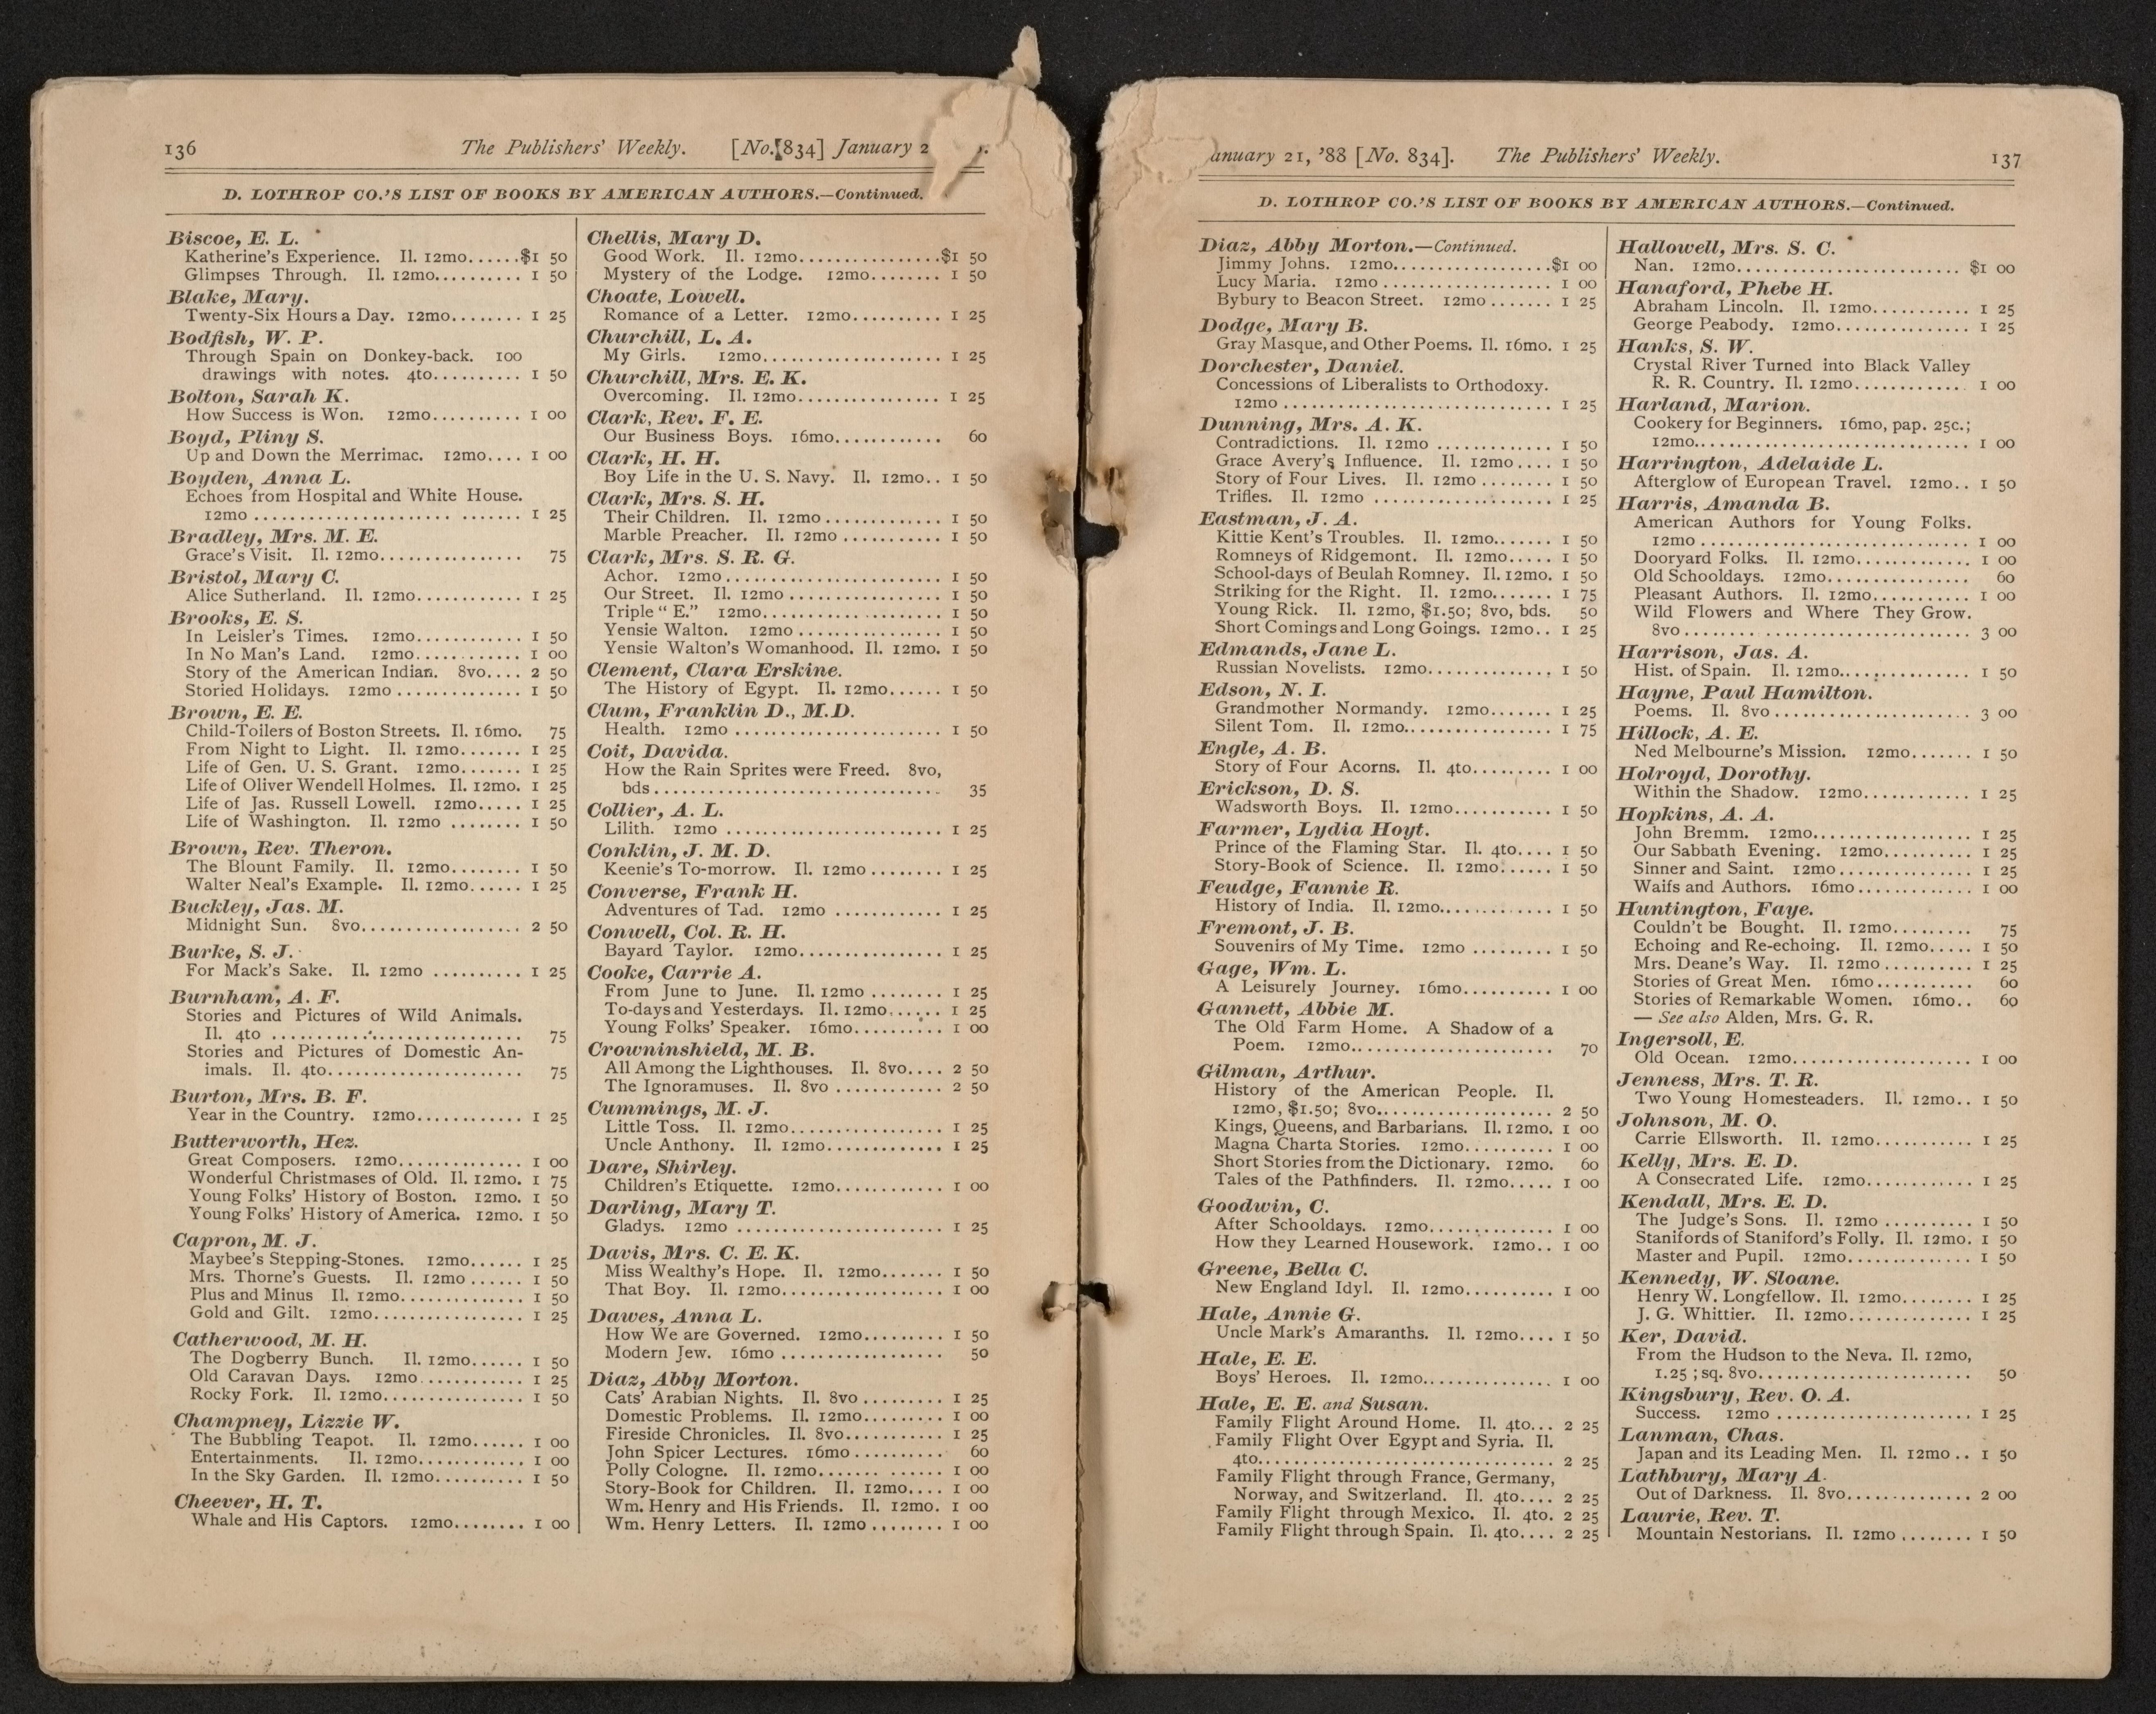 136 The Publishers' Weekly. [No. 834] January
D. LOTHROP CO.'S LIST OF BOOKS BY AMERICAN AUTHORS.—Continued.
Biscoe, E. L.
Katherine's Experience. Il. 12mo......$1 50
Glimpses Through. Il. 12mo.......... 1 50
Blake, Mary.
Twenty-Six Hours a Day. 12mo........ 1 25
Bodfish, W. P.
Through Spain on Donkey-back. 100
drawings with notes. 4to.......... 1 50
Bolton, Sarah K.
How Success is Won. 12mo.......... 1 00
Boyd, Pliny S.
Up and Down the Merrimac. 12mo.... 1 00
Boyden, Anna L.
Echoes from Hospital and White House.
12mo ............................. 1 25
Bradley, Mrs. M. E.
Grace's Visit. Il. 12mo............... 75
Bristol, Mary C.
Alice Sutherland. Il. 12mo............ 1 25
Brooks, E. S.
In Leisler's Times. 12mo............ 1 50
In No Man's Land. 12mo............ 1 00
Story of the American Indian. 8vo.... 2 50
Storied Holidays. 12mo ............. 1 50
Brown, E. E.
Child-Toilers of Boston Streets. Il. 16mo. 75
From Night to Light. Il. 12mo....... 1 25
Life of Gen. U. S. Grant. 12mo....... 1 25
Life of Oliver Wendell Holmes. Il. 12mo. 1 25
Life of Jas. Russell Lowell. 12mo..... 1 25
Life of Washington. Il. 12mo ........ 1 50
Brown, Rev. Theron.
The Blount Family. Il. 12mo......... 1 50
Walter Neal's Example. Il. 12mo...... 1 25
Buckley, Jas. M.
Midnight Sun. 8vo.................. 2 50
Burke, S. J.
For Mack's Sake. Il. 12mo .......... 1 25
Burnham, A. F.
Stories and Pictures of Wild Animals.
Il. 4to ............................ 75
Stories and Pictures of Domestic An-
imals. Il. 4to...................... 75
Burton, Mrs. B. F.
Year in the Country. 12mo............ 1 25
Butterworth, Hez.
Great Composers. 12mo.............. 1 00
Wonderful Christmases of Old. Il. 12mo. 1 75
Young Folks' History of Boston. 12mo. 1 50
Young Folks' History of America. 12mo. 1 50
Capron, M. J.
Maybee's Stepping-Stones. 12mo...... 1 25
Mrs. Thorne's Guests. Il. 12mo ...... 1 50
Plus and Minus Il. 12mo.............. 1 50
Gold and Gilt. 12mo................. 1 25
Catherwood, M. H.
The Dogberry Bunch. Il. 12mo...... 1 50
Old Caravan Days. 12mo............ 1 25
Rocky Fork. Il. 12mo................ 1 50
Champney, Lizzie W.
The Bubbling Teapot. Il. 12mo...... 1 00
Entertainments. Il. 12mo............ 1 00
In the Sky Garden. Il. 12mo.......... 1 50
Cheever, H. T.
Whale and His Captors. 12mo........ 1 00
Chellis, Mary D.
Good Work. Il. 12mo................$1 50
Mystery of the Lodge. 12mo........ 1 50
Choate, Lowell.
Romance of a Letter. 12mo.......... 1 25
Churchill, L. A.
My Girls. 12mo.................... 1 25
Churchill, Mrs. E. K.
Overcoming. Il. 12mo................ 1 25
Clark, Rev. F. E.
Our Business Boys. 16mo............ 60
Clark, H. H.
Boy Life in the U. S. Navy. Il. 12mo.. 1 50
Clark, Mrs. S. H.
Their Children. Il. 12mo............. 1 50
Marble Preacher. Il. 12mo ........... 1 50
Clark, Mrs. S. R. G.
Achor. 12mo........................ 1 50
Our Street. Il. 12mo ................. 1 50
Triple "E." 12mo.................... 1 50
Yensie Walton. 12mo ................ 1 50
Yensie Walton's Womanhood. Il. 12mo. 1 50
Clement, Clara Erskine.
The History of Egypt. Il. 12mo...... 1 50
Clum, Franklin D., M.D.
Health. 12mo ....................... 1 50
Coit, Davida.
How the Rain Sprites were Freed. 8vo,
bds ................................ 35
Collier, A. L.
Lilith. 12mo ........................ 1 25
Conklin, J. M. D.
Keenie's To-morrow. Il. 12mo ........ 1 25
Converse, Frank H.
Adventures of Tad. 12mo ............ 1 25
Conwell, Col. R. H.
Bayard Taylor. 12mo................ 1 25
Cooke, Carrie A.
From June to June. Il. 12mo ........ 1 25
To-days and Yesterdays. Il. 12mo...... 1 25
Young Folks' Speaker. 16mo.......... 1 00
Crowninshield, M. B.
All Among the Lighthouses. Il. 8vo.... 2 50
The Ignoramuses. Il. 8vo ............ 2 50
Cummings, M. J.
Little Toss. Il. 12mo................. 1 25
Uncle Anthony. Il. 12mo............. 1 25
Dare, Shirley.
Children's Etiquette. 12mo............ 1 00
Darling, Mary T.
Gladys. 12mo ....................... 1 25
Davis, Mrs. C. E. K.
Miss Wealthy's Hope. Il. 12mo....... 1 50
That Boy. Il. 12mo.................. 1 00
Dawes, Anna L.
How We are Governed. 12mo......... 1 50
Modern Jew. 16mo .................. 50
Diaz, Abby Morton.
Cats' Arabian Nights. Il. 8vo ......... 1 25
Domestic Problems. Il. 12mo......... 1 00
Fireside Chronicles. Il. 8vo........... 1 25
John Spicer Lectures. 16mo .......... 60
Polly Cologne. Il. 12mo............. 1 00
Story-Book for Children. Il. 12mo.... 1 00
Wm. Henry and His Friends. Il. 12mo. 1 00
Wm. Henry Letters. Il. 12mo ........ 1 00
anuary 21, '88 [No. 834]. The Publishers' Weekly. 137
D. LOTHROP CO.'S LIST OF BOOKS BY AMERICAN AUTHORS.—Continued.
Diaz, Abby Morton.—Continued.
Jimmy Johns. 12mo..................$1 00
Lucy Maria. 12mo .................. 1 00
Bybury to Beacon Street. 12mo ....... 1 25
Dodge, Mary B.
Gray Masque, and Other Poems. Il. 16mo. 1 25
Dorchester, Daniel.
Concessions of Liberalists to Orthodoxy.
12mo .............................. 1 25
Dunning, Mrs. A. K.
Contradictions. Il. 12mo ............. 1 50
Grace Avery's Influence. Il. 12mo.... 1 50
Story of Four Lives. Il. 12mo ........ 1 50
Trifles. Il. 12mo .................... 1 25
Eastman, J. A.
Kittie Kent's Troubles. Il. 12mo....... 1 50
Romneys of Ridgemont. Il. 12mo..... 1 50
School-days of Beulah Romney. Il. 12mo. 1 50
Striking for the Right. Il. 12mo....... 1 75
Young Rick. Il. 12mo, $1.50; 8vo, bds. 50
Short Comings and Long Goings. 12mo.. 1 25
Edmands, Jane L.
Russian Novelists. 12mo.............. 1 50
Edson, N. I.
Grandmother Normandy. 12mo....... 1 25
Silent Tom. Il. 12mo................. 1 75
Engle, A. B.
Story of Four Acorns. Il. 4to......... 1 00
Erickson, D. S.
Wadsworth Boys. Il. 12mo........... 1 50
Farmer, Lydia Hoyt.
Prince of the Flaming Star. Il. 4to.... 1 50
Story-Book of Science. Il. 12mo...... 1 50
Feudge, Fannie R.
History of India. Il. 12mo............ 1 50
Fremont, J. B.
Souvenirs of My Time. 12mo ......... 1 50
Gage, Wm. L.
A Leisurely Journey. 16mo.......... 1 00
Gannett, Abbie M.
The Old Farm Home. A Shadow of a
Poem. 12mo....................... 70
Gilman, Arthur.
History of the American People. Il.
12mo, $1.50; 8vo.................... 2 50
Kings, Queens, and Barbarians. Il. 12mo. 1 00
Magna Charta Stories. 12mo.......... 1 00
Short Stories from the Dictionary. 12mo. 60
Tales of the Pathfinders. Il. 12mo..... 1 00
Goodwin, C.
After Schooldays. 12mo.............. 1 00
How they Learned Housework. 12mo.. 1 00
Greene, Bella C.
New England Idyl. Il. 12mo.......... 1 00
Hale, Annie G.
Uncle Mark's Amaranths. Il. 12mo.... 1 50
Hale, E. E.
Boys' Heroes. Il. 12mo.............. 1 00
Hale, E. E. and Susan.
Family Flight Around Home. Il. 4to... 2 25
Family Flight Over Egypt and Syria. Il.
4to................................. 2 25
Family Flight through France, Germany,
Norway, and Switzerland. Il. 4to.... 2 25
Family Flight through Mexico. Il. 4to. 2 25
Family Flight through Spain. Il. 4to.... 2 25
Hallowell, Mrs. S. C.
Nan. 12mo......................... $1 00
Hanaford, Phebe H.
Abraham Lincoln. Il. 12mo........... 1 25
George Peabody. 12mo.............. 1 25
Hanks, S. W.
Crystal River Turned into Black Valley
R. R. Country. Il. 12mo............ 1 00
Harland, Marion.
Cookery for Beginners. 16mo, pap. 25c.;
12mo............................... 1 00
Harrington, Adelaide L.
Afterglow of European Travel. 12mo.. 1 50
Harris, Amanda B.
American Authors for Young Folks.
12mo .............................. 1 00
Dooryard Folks. Il. 12mo............ 1 00
Old Schooldays. 12mo................ 60
Pleasant Authors. Il. 12mo........... 1 00
Wild Flowers and Where They Grow.
8vo................................ 3 00
Harrison, Jas. A.
Hist. of Spain. Il. 12mo.............. 1 50
Hayne, Paul Hamilton.
Poems. Il. 8vo ...................... 3 00
Hillock, A. E.
Ned Melbourne's Mission. 12mo....... 1 50
Holroyd, Dorothy.
Within the Shadow. 12mo............ 1 25
Hopkins, A. A.
John Bremm. 12mo.................. 1 25
Our Sabbath Evening. 12mo.......... 1 25
Sinner and Saint. 12mo............... 1 25
Waifs and Authors. 16mo............. 1 00
Huntington, Faye.
Couldn't be Bought. Il. 12mo......... 75
Echoing and Re-echoing. Il. 12mo..... 1 50
Mrs. Deane's Way. Il. 12mo .......... 1 25
Stories of Great Men. 16mo........... 60
Stories of Remarkable Women. 16mo.. 60
— See also Alden, Mrs. G. R.
Ingersoll, E.
Old Ocean. 12mo.................... 1 00
Jenness, Mrs. T. R.
Two Young Homesteaders. Il. 12mo.. 1 50
Johnson, M. O.
Carrie Ellsworth. Il. 12mo........... 1 25
Kelly, Mrs. E. D.
A Consecrated Life. 12mo............ 1 25
Kendall, Mrs. E. D.
The Judge's Sons. Il. 12mo .......... 1 50
Stanifords of Staniford's Folly. Il. 12mo. 1 50
Master and Pupil. 12mo.............. 1 50
Kennedy, W. Sloane.
Henry W. Longfellow. Il. 12mo........ 1 25
J. G. Whittier. Il. 12mo.............. 1 25
Ker, David.
From the Hudson to the Neva. Il. 12mo,
1.25 ; sq. 8vo....................... 50
Kingsbury, Rev. O. A.
Success. 12mo ...................... 1 25
Lanman, Chas.
Japan and its Leading Men. Il. 12mo .. 1 50
Lathbury, Mary A.
Out of Darkness. Il. 8vo.............. 2 00
Laurie, Rev. T.
Mountain Nestorians. Il. 12mo ........ 1 50